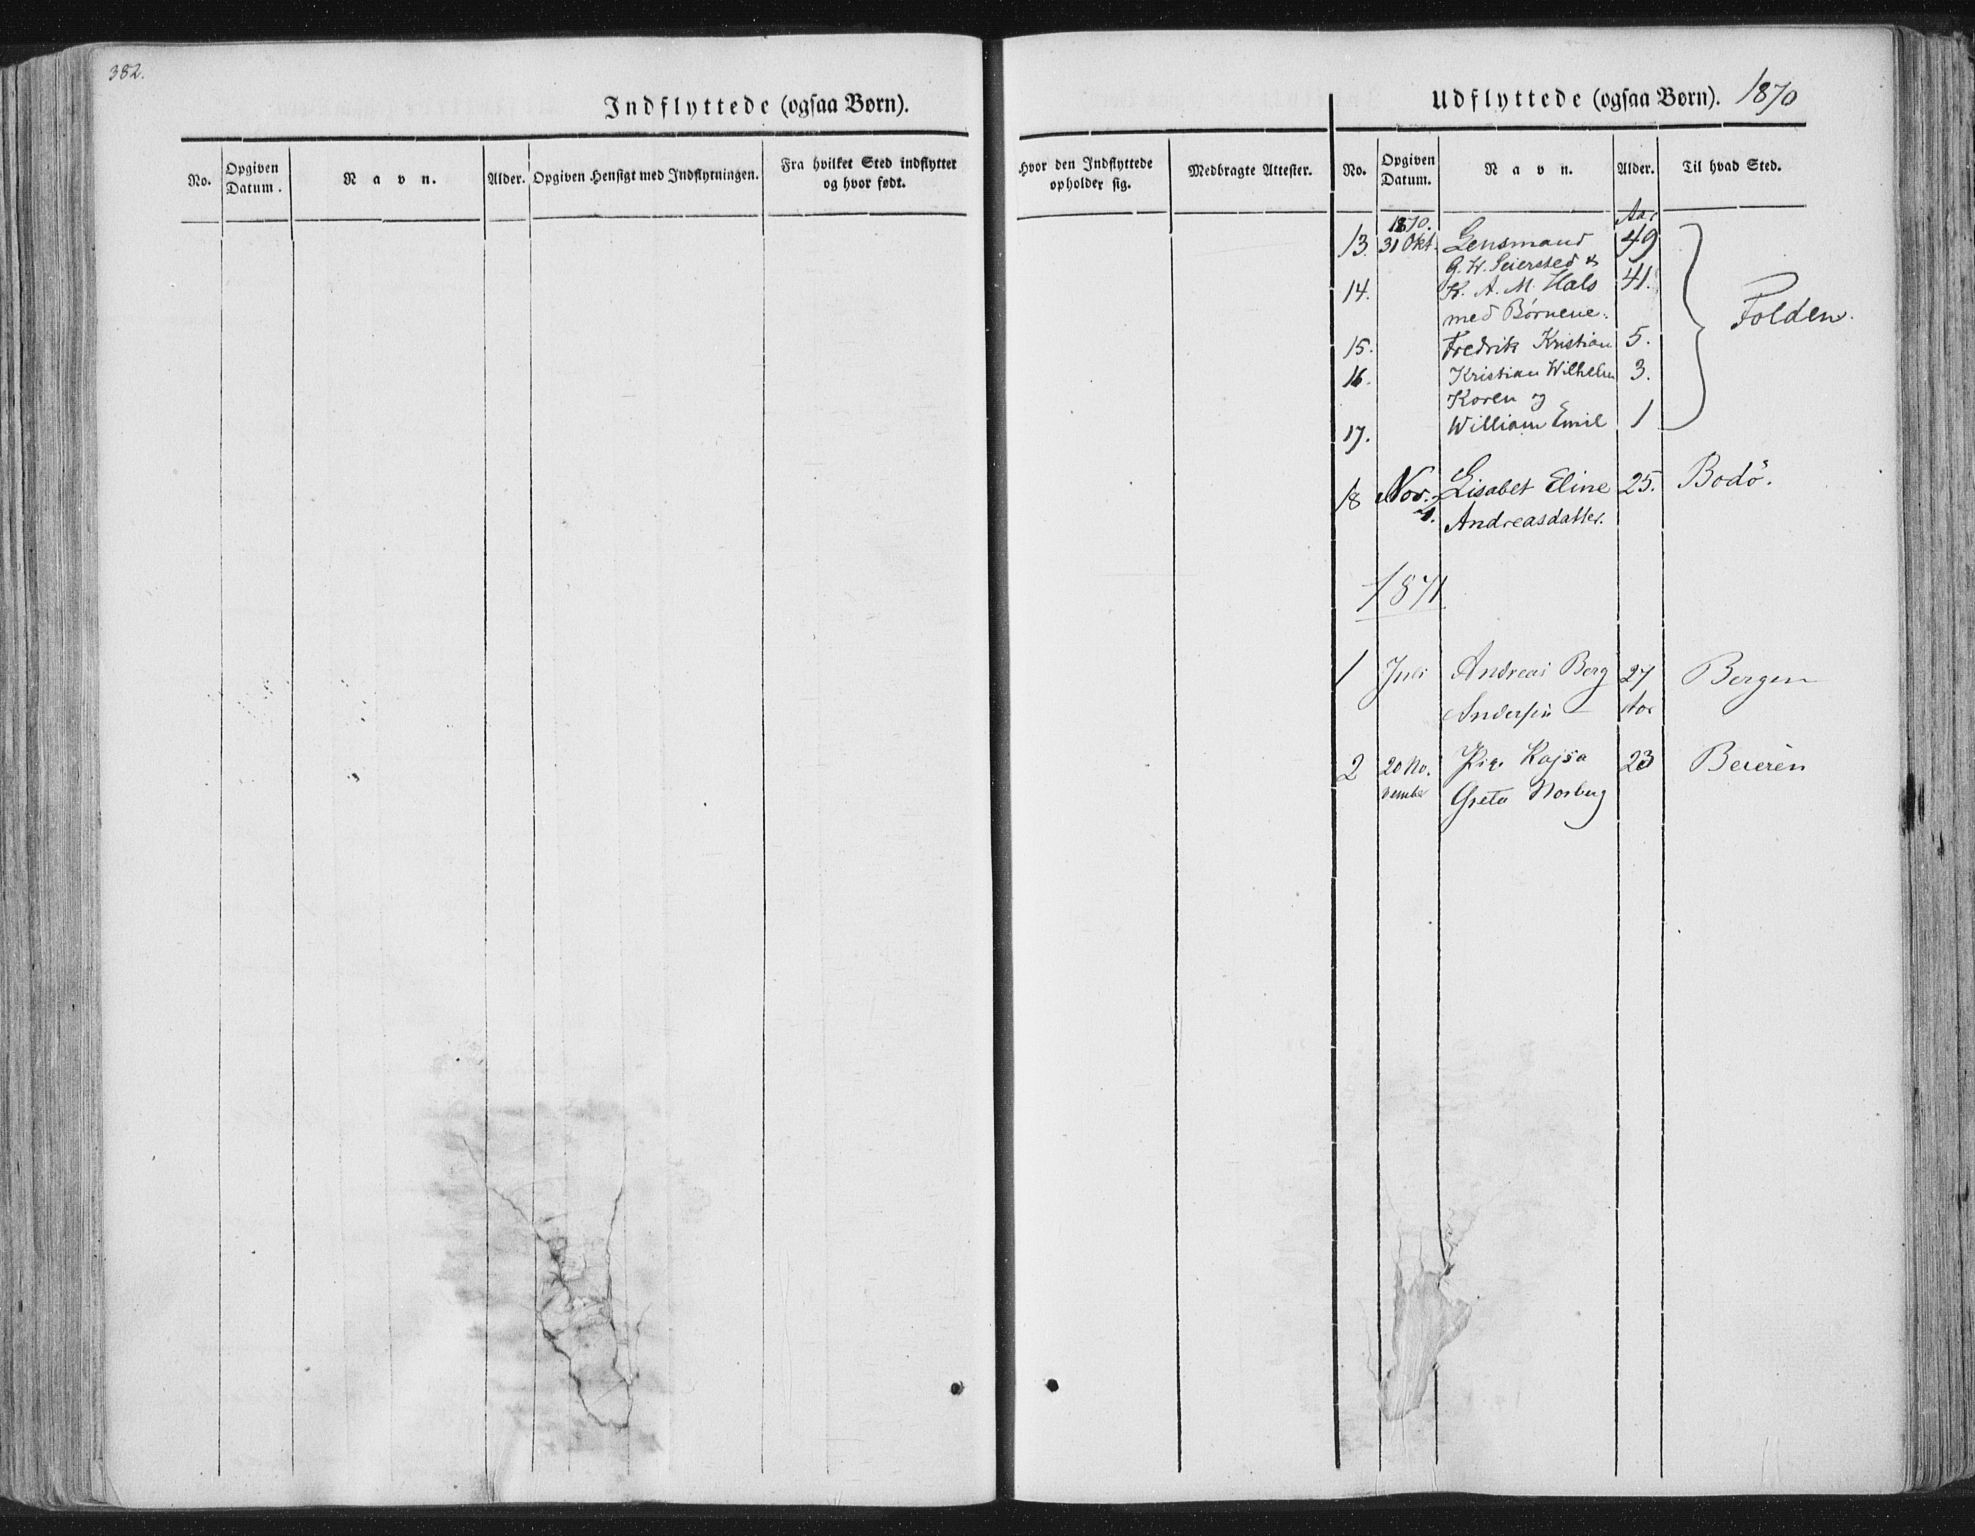 382.
Indflyttede (ogsaa Børn).
No. Opgiven Datum. Navn. Alder. Opgiven Hensigt med Indflytningen. Fra hvilket Sted indflyttet og hvor født.
Hvor den Indflyttede opholder sig. Medbragte Attester.
Udflyttede (ogsaa Børn). 1870
No. Opgiven Datum. Navn. Alder. Til hvad Sted.
1870. Aar
13. 31 Okt. Lensmand 49
G. W. Seiersted &
14. K. A. M. Hals 41.
med Børnene: Folden.
15. Fredrik Kristian 5.
16. Kristian Wilhelm 3.
Koren og
17. William Emil 1
18 Nov. 4. Lisabet Eline 25. Bodö.
Andreasdatter.
1871
1 Juli Andreas Berg 27 Bergen
Andersen Aar
2 20 No- Pige Kajsa 23 Beieren
vember Greta Norberg